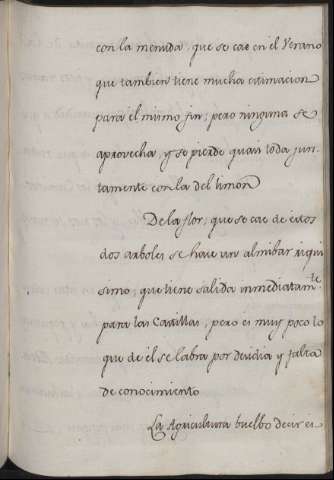 con la menuda, que se cae en el Verano
que tambien tiene mucha estimacion
para el mismo fin; pero ninguna se
aprovecha, y se pierde quasi toda jun-
tamente con la del limon
De la flor, que se cae de estos
dos arboles se hace un almibar riqui
simo, que tiene salida inmediatam.te
para las Casillas, pero es muy poco lo
que de èl se labra por desidia y falta
de conocimiento
La Agricultura buelbo decir es